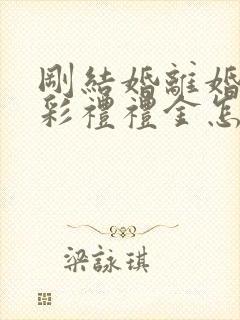 剛結婚離婚
彩禮禮金怎
梁詠琪